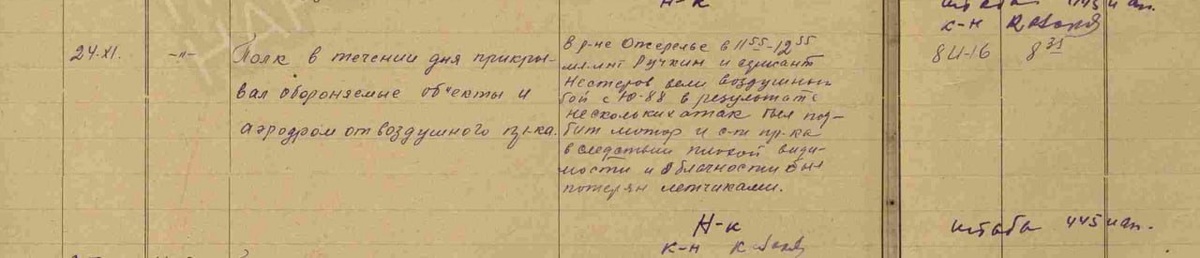 Н-к
штаба 445 иап.
к-н
24.XI.
-"-
Полк в течении дня прикры-
вал обороняемые об"екты и
аэродром от воздушного пр-ка.
В р-не Ожерелье в 11⁵⁵-12³⁵
мл. л-нт Ручкин и сержант
Нестеров вели воздушный
бой с Ю-88 в результате
нескольких атак был под-
бит мотор и с-т пр-ка
в следствии плохой види-
мости и облачности был
потерян летчиками.
8
И-16
8³⁵
Н-к
штаба 445 иап.
к-н